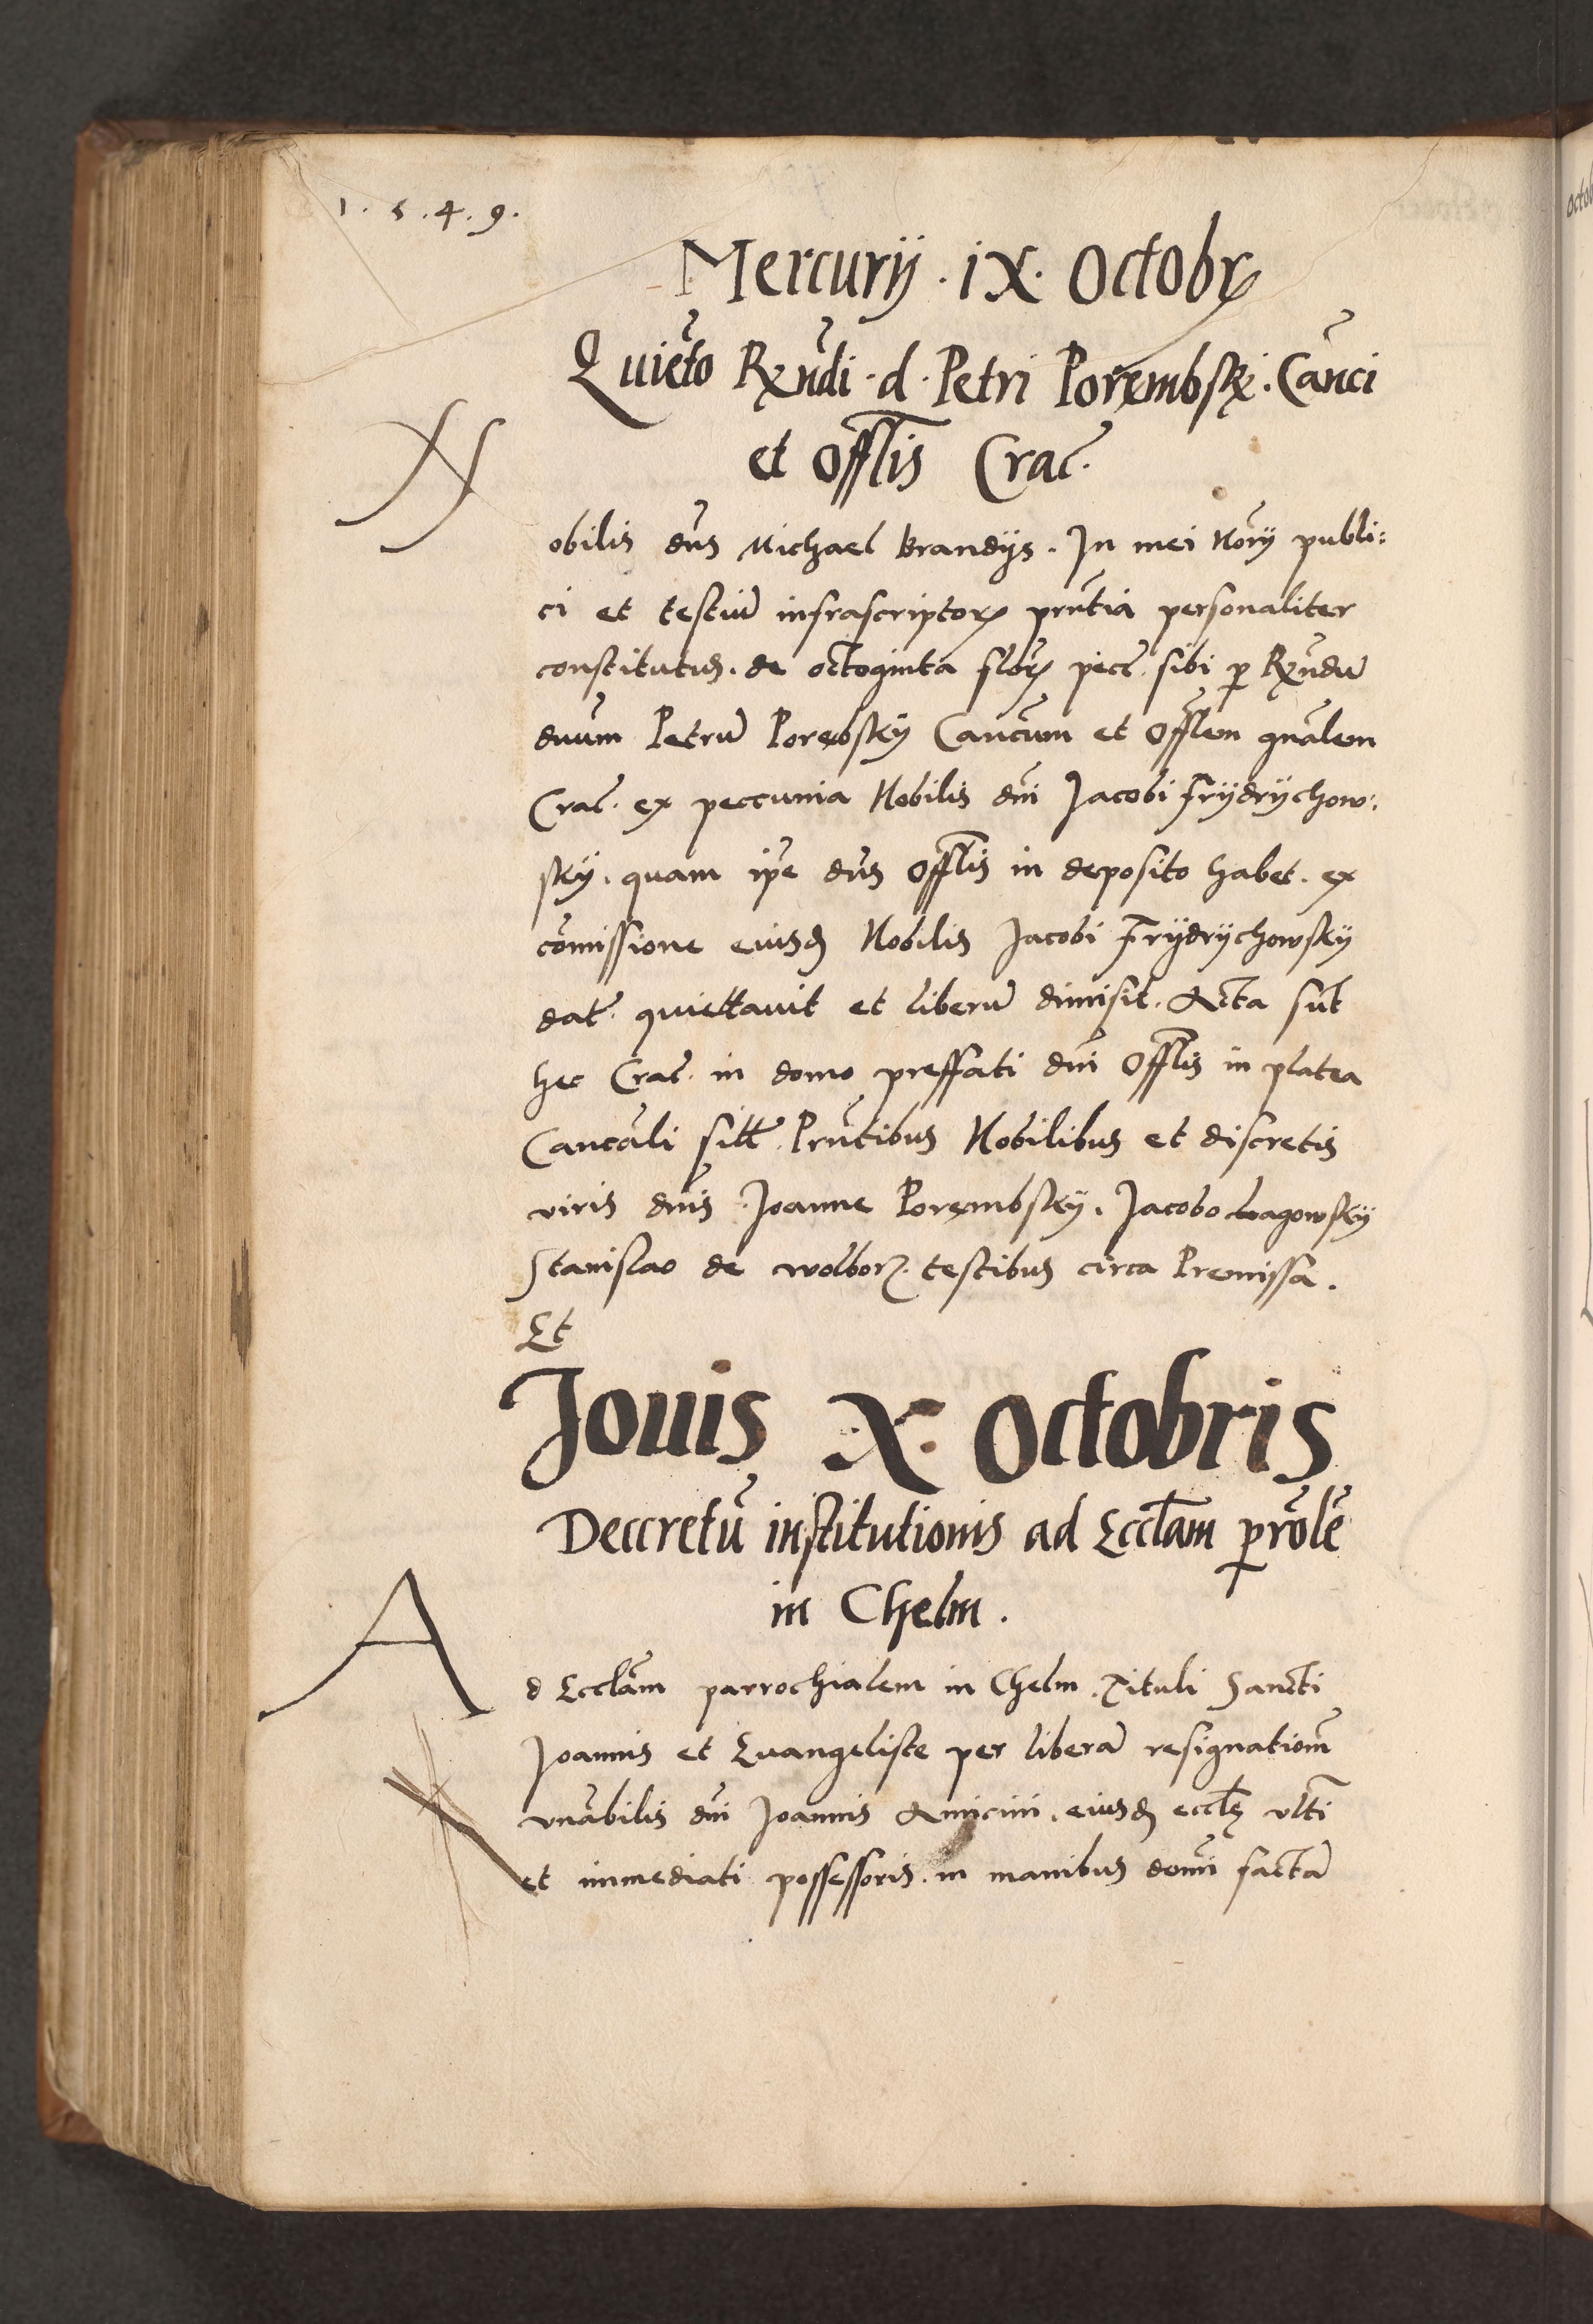 1.5.4.9.
Mercurij . ix . Octobrꝭ
Quietõ Rx̃ndi . d . Petri Porembskj . Cañci
et Offlĩs Crac̃.
Nobilis dñs Michael Brandÿs . In mei Nõrij publi:
ci et testiũ infrascriptoꝝ pñtia personaliter
constitutus . de octoginta floꝝ pecc̃ . sibi ꝑ Rx̃ndũ
dnũm Petrũ Porebskÿ Cancũm et Offlẽm gñalem
Crac̃ . ex peccunia Nobilis dñi Jacobi Frÿdrÿchow:
skÿ . quam ip̃e dñs Offlĩs in deposito habet . ex
cõmissione eiusdẽ Nobilis Jacobi Frÿdrÿchowskÿ
dat̃ . quiettauit et liberũ dimisit . Acta sũt
hec Crac̃ . in domo preffati dñi Offlĩs in platea
Cancãli sitt̃ . Pñtibus Nobilibus et discretis
viris dñis Joanne Porembskÿ . Jacobo
Stanislao de wolborz . testibus circa Premissa .
Et
Jouis . X . Octobris
Deccretũ institutionis ad Eccl̃am ꝑrõlẽ
in Chelm .
Ad Eccl̃am parrochialem in Chelm . Tituli Sancti
Joannis et Euangeliste per liberã resignationẽ
vnãbilis dñi Joannis Amicini . eiusdẽ eccl̃ę vltĩ
et immediati possessoris . in manibus domĩ factã